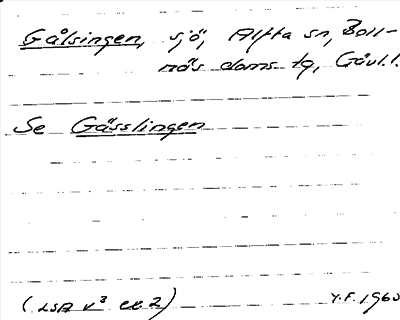 Gålsingen, sjö, Alfta sn, Boll-
näs doms tg, Gävl.l.
Se Gässlingen
(LSA v³ ex. 2) Y.F. 1960